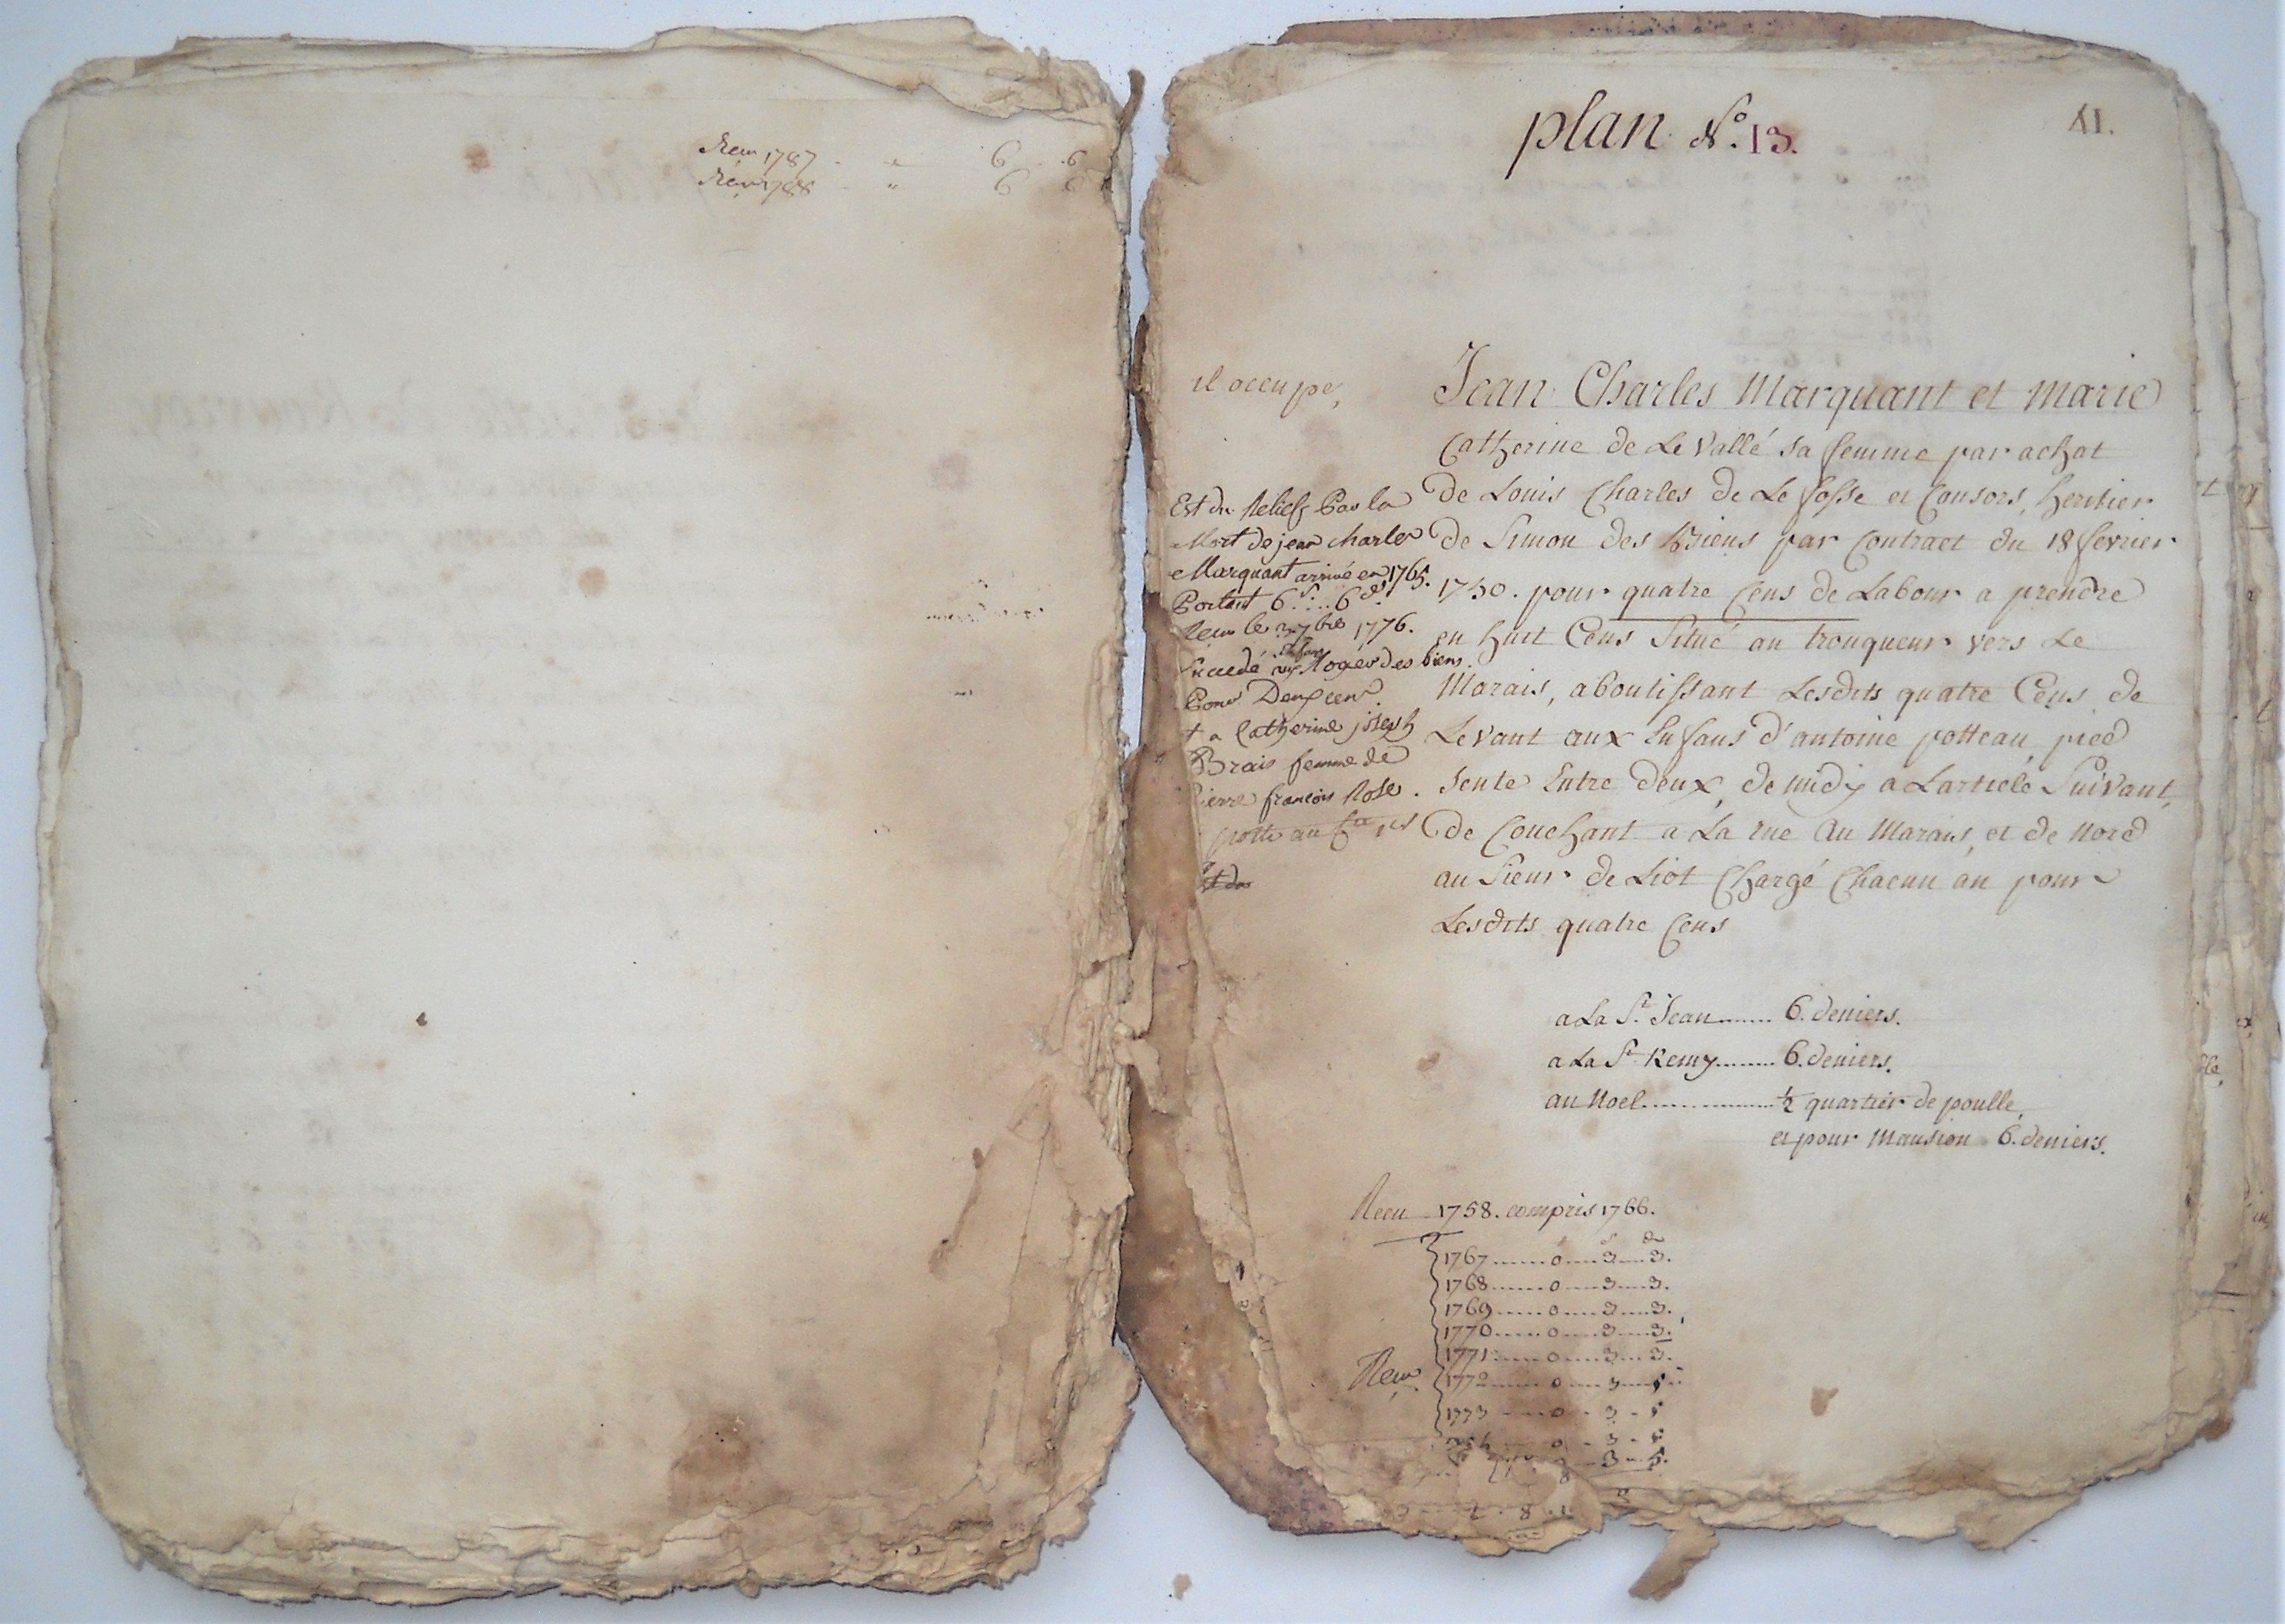 Recu 1787 - " 6 6
Recu 1788 - " 6 6
plan N.o 13.
41.
il occupe,
Jean Charles Marquant et marie
Catherine de Le Vallé sa femme par achat
de Louis Charles de Le fosse et Consors, heritier
de Simon des Biens par Contract du 18 fevrier
1750. pour quatre Cens de Labour a prendre
en huit Cens Situé au tronqueur vers Le
Marais, aboutissant Lesdits quatre Cens de
Levant aux Enfans d'antoine potteau pied
Sente Entre deux, de midy a Larticle Suivant,
de Couchant a La rue du Marais, et de Nord
au Sieur de Liot Chargé Chacun an pour
Lesdits quatre Cens
Est du Relief Par la
Mort de jean charles
Marquant arrivé en 1765.
Portant 6.s... 6.d
Recu le 3 7bre 1776.
Succedé Roger des biens
Pour Deux cens.
a Catherine joseph
Brais femme de
pierre françois Rose.
potte au
Est du
a La St. Jean....... 6. deniers.
a La St Remy........ 6. deniers.
au Noel................. ½ quartier de poulle,
et pour Mansion 6. deniers.
Recu 1758. compris 1766.
s d
1767.......0....3....3.
1768.......0....3....3.
1769.......0....3....3.
1770.......0....3....3.
1771.......0....3....3.
Recu 1772.......0....3....5
1773 ....0 - 3 - 5
0 - 3 - 5
3 - 5.